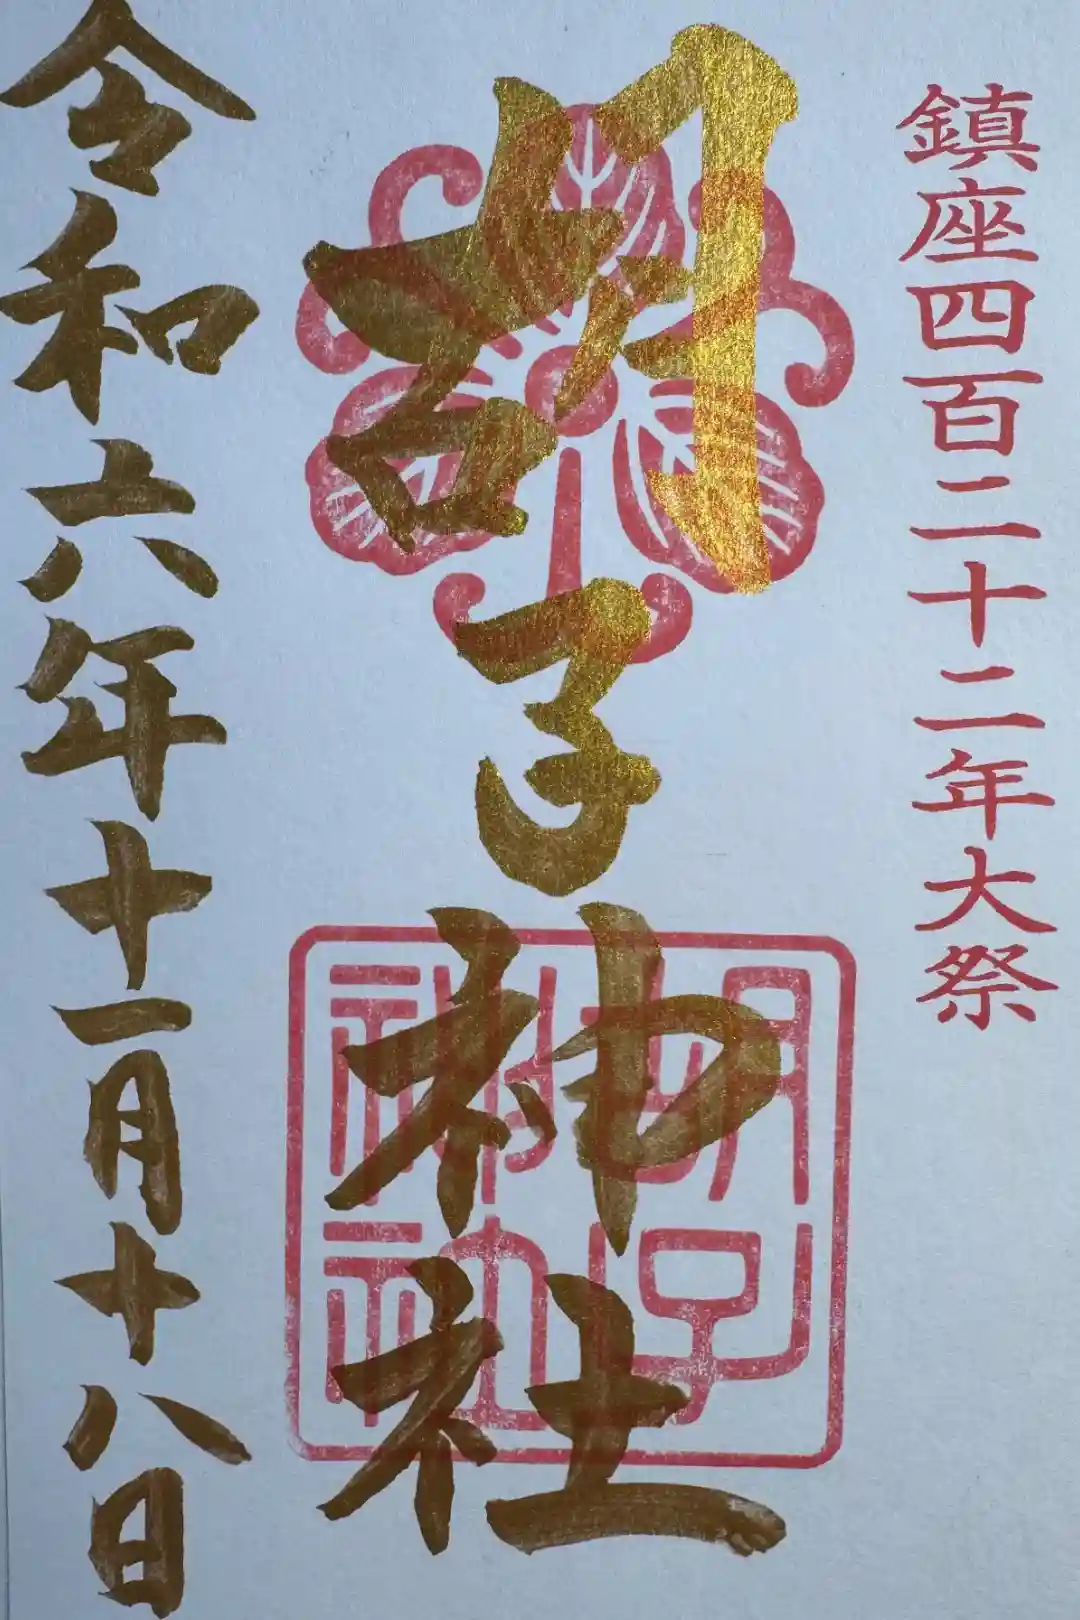 鎮座四百二十二年大祭
胡子神社
胡子神社
令和六年十一月十八日